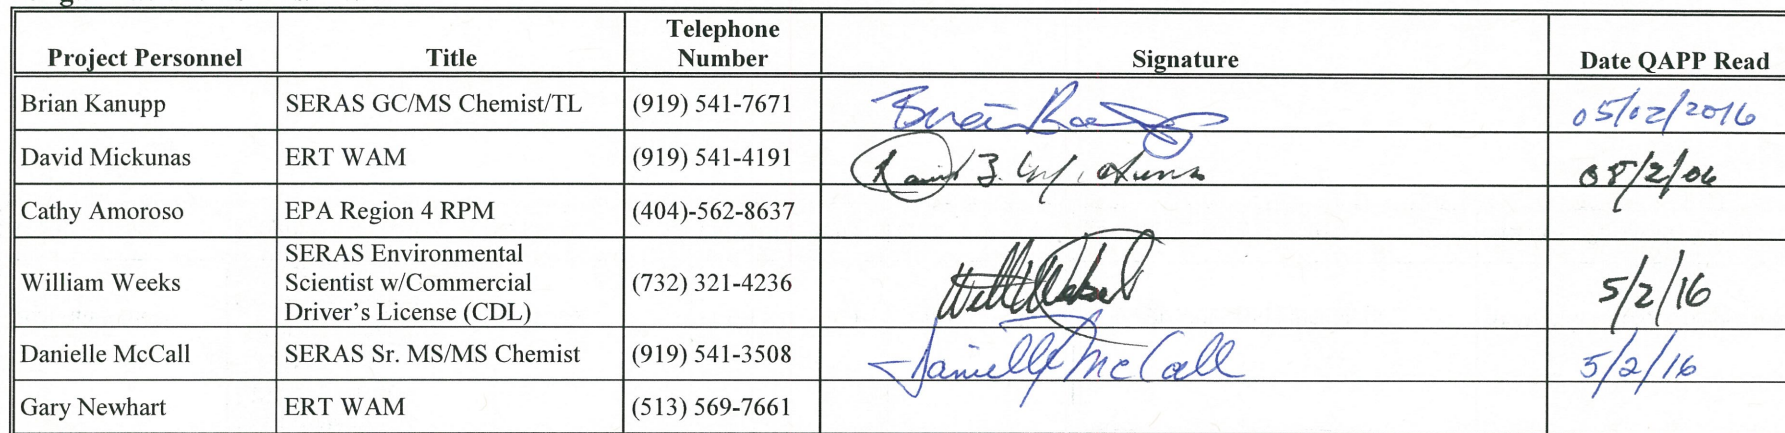 Project Personnel Title Telephone Number Signature Date QAPP Read
Brian Kanupp SERAS GC/MS Chemist/TL (919) 541-7671 05/02/2016
David Mickunas ERT WAM (919) 541-4191
Cathy Amoroso EPA Region 4 RPM (404)-562-8637
William Weeks SERAS Environmental Scientist w/Commercial Driver's License (CDL) (732) 321-4236 5/2/16
Danielle McCall SERAS Sr. MS/MS Chemist (919) 541-3508 Danielle McCall 5/2/16
Gary Newhart ERT WAM (513) 569-7661